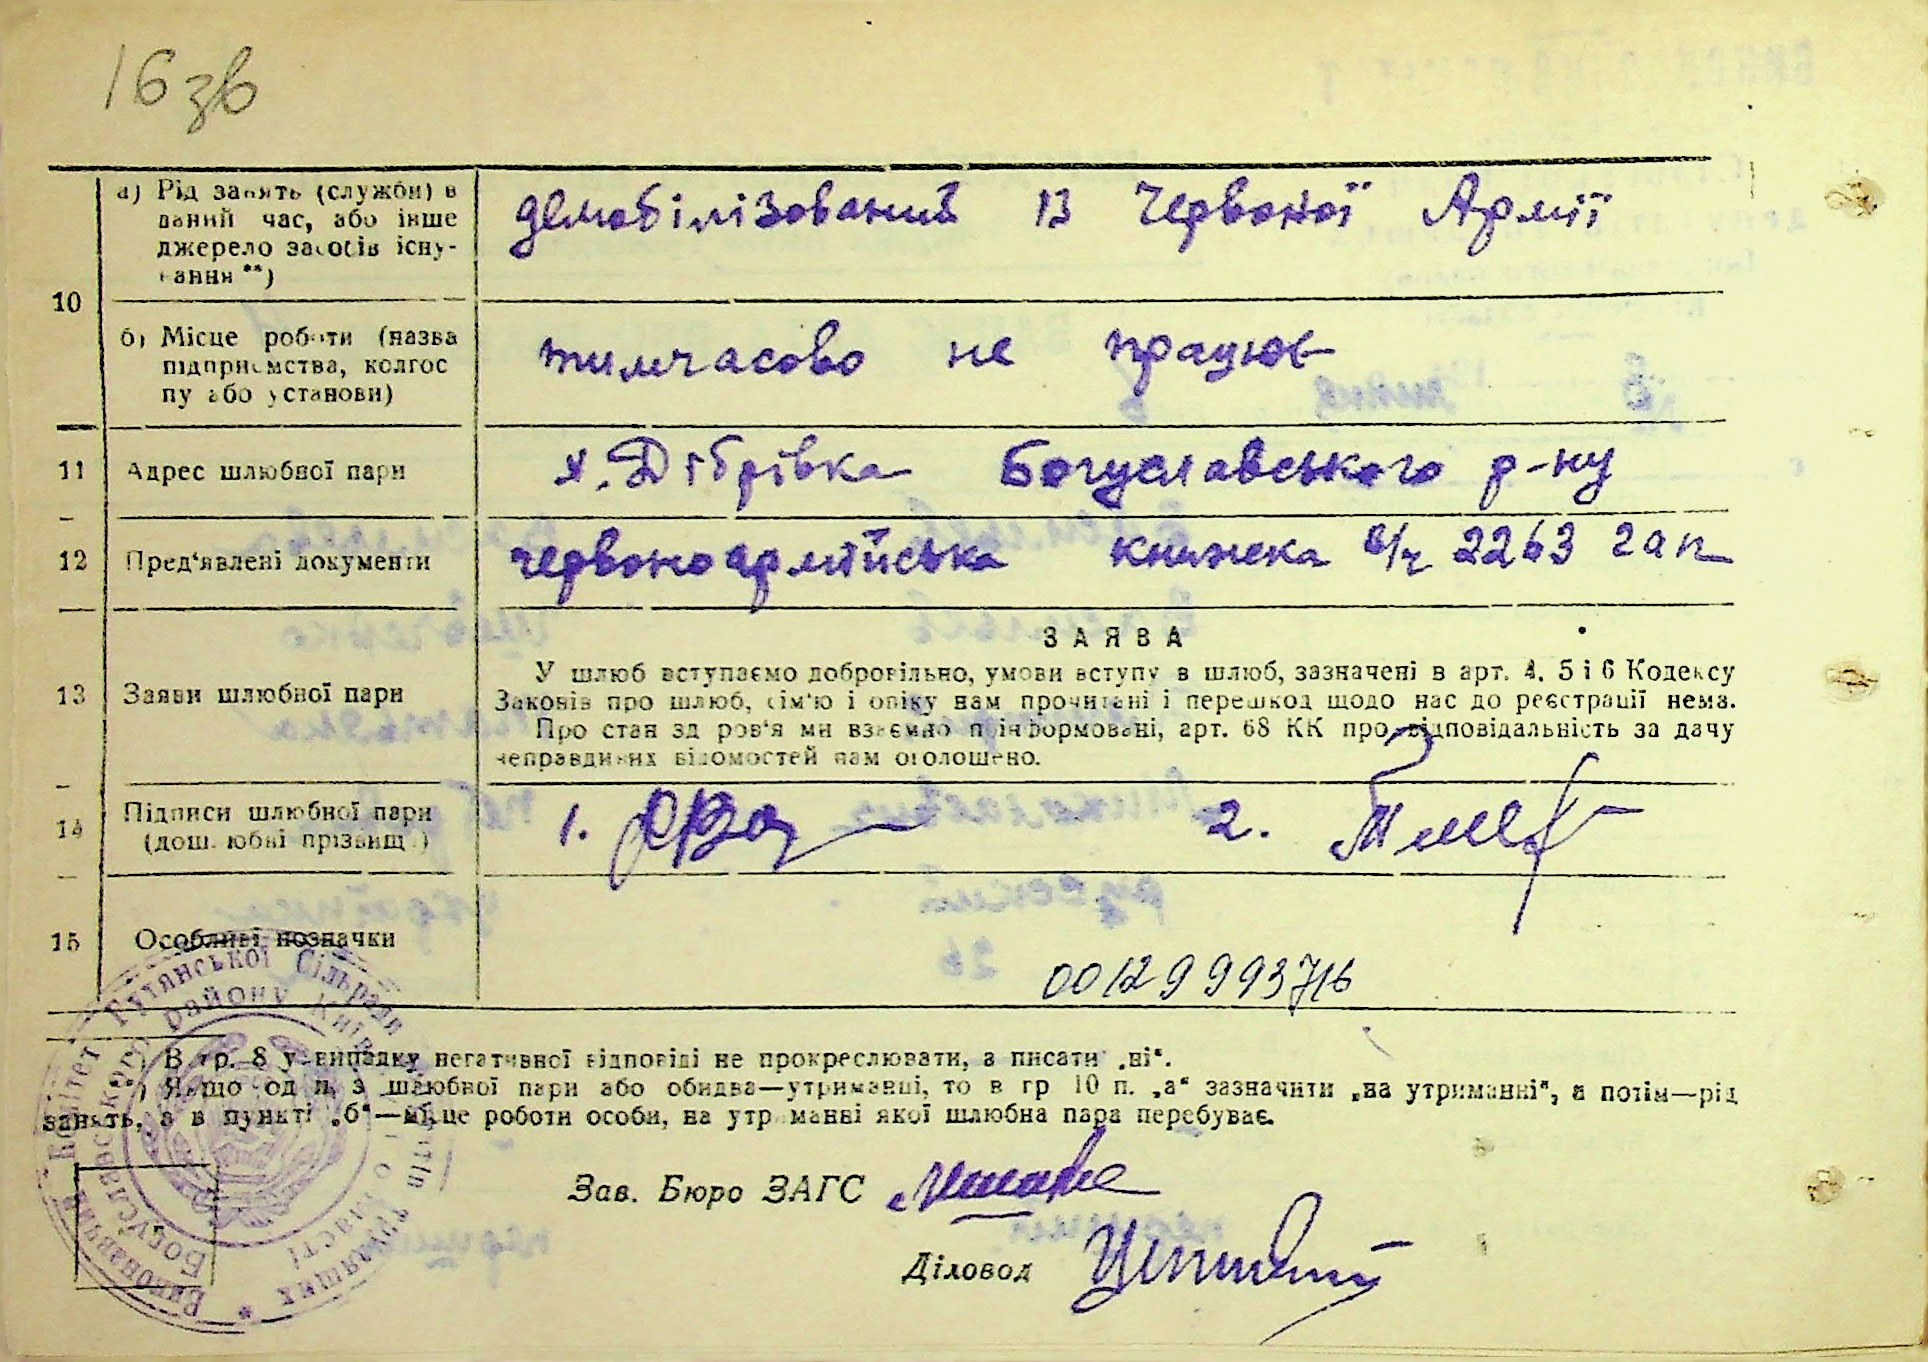 16 зв
а) Рід занять (служби) в
даний час, або інше
джерело засобів існу-
вання **)
демобілізований із Червоної Армії
10
б) Місце роботи (назва
підприємства, колгос
пу або установи)
тимчасово не працює
11 Адрес шлюбної пари х. Дібрівка Богуславського р-ну
12 Пред'явлені документи червоноармійська книжека в/ч 2263 гап
ЗАЯВА
13 Заяви шлюбної пари
У шлюб вступаємо добровільно, умови вступу в шлюб, зазначені в арт. 4, 5 і 6 Кодексу
Законів про шлюб, сім'ю і опіку нам прочитані і перешкод щодо нас до реєстрації нема.
Про стан здоров'я ми взаємно поінформовані, арт. 68 КК про відповідальність за дачу
неправдивих відомостей нам оголошено.
14 Підписи шлюбної пари
(дошлюбні прізвища)
1. 2.
15 Особливі позначки
00129993716
*) В гр. 8 у випадку негативної відповіді не прокреслювати, а писати „ні“.
**) Якщо один з шлюбної пари або обидва—утриманці, то в гр 10 п. „а“ зазначити „на утриманні“, а потім—рід
занять, а в пункті „б“—місце роботи особи, на утриманні якої шлюбна пара перебуває.
Зав. Бюро ЗАГС
Діловод
Виконавчий Комітет Гутянської Сільради Депутатів Трудящих *
Богуславського району Київської області